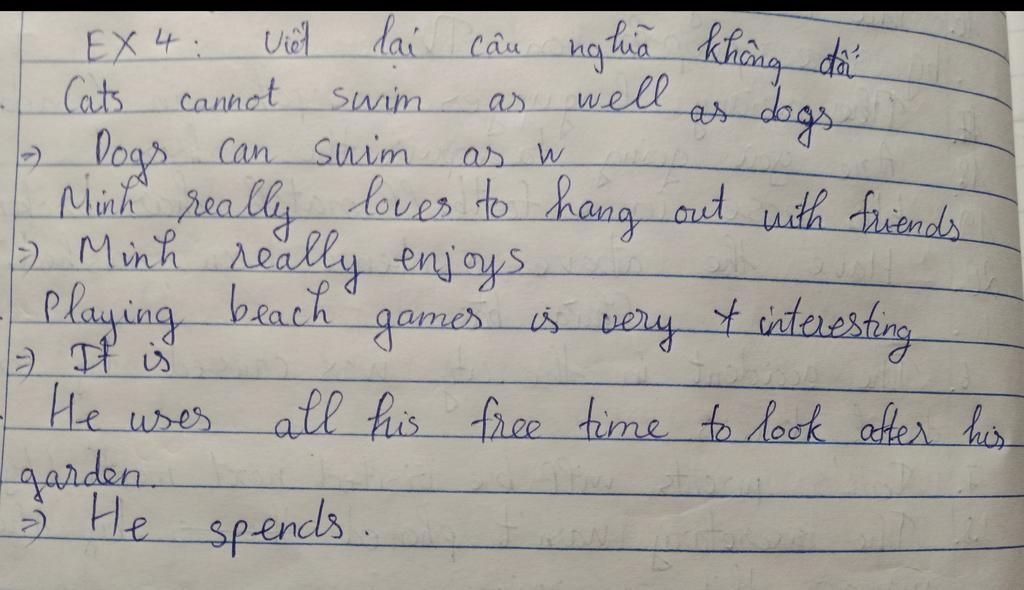 EX 4: Viết lại câu nghĩa không đổi
Cats cannot swim as well as dogs
=> Dogs can swim as w
Minh really loves to hang out with friends
=> Minh really enjoys
Playing beach games is very interesting
=> It is
He uses all his free time to look after his
garden.
=> He spends.